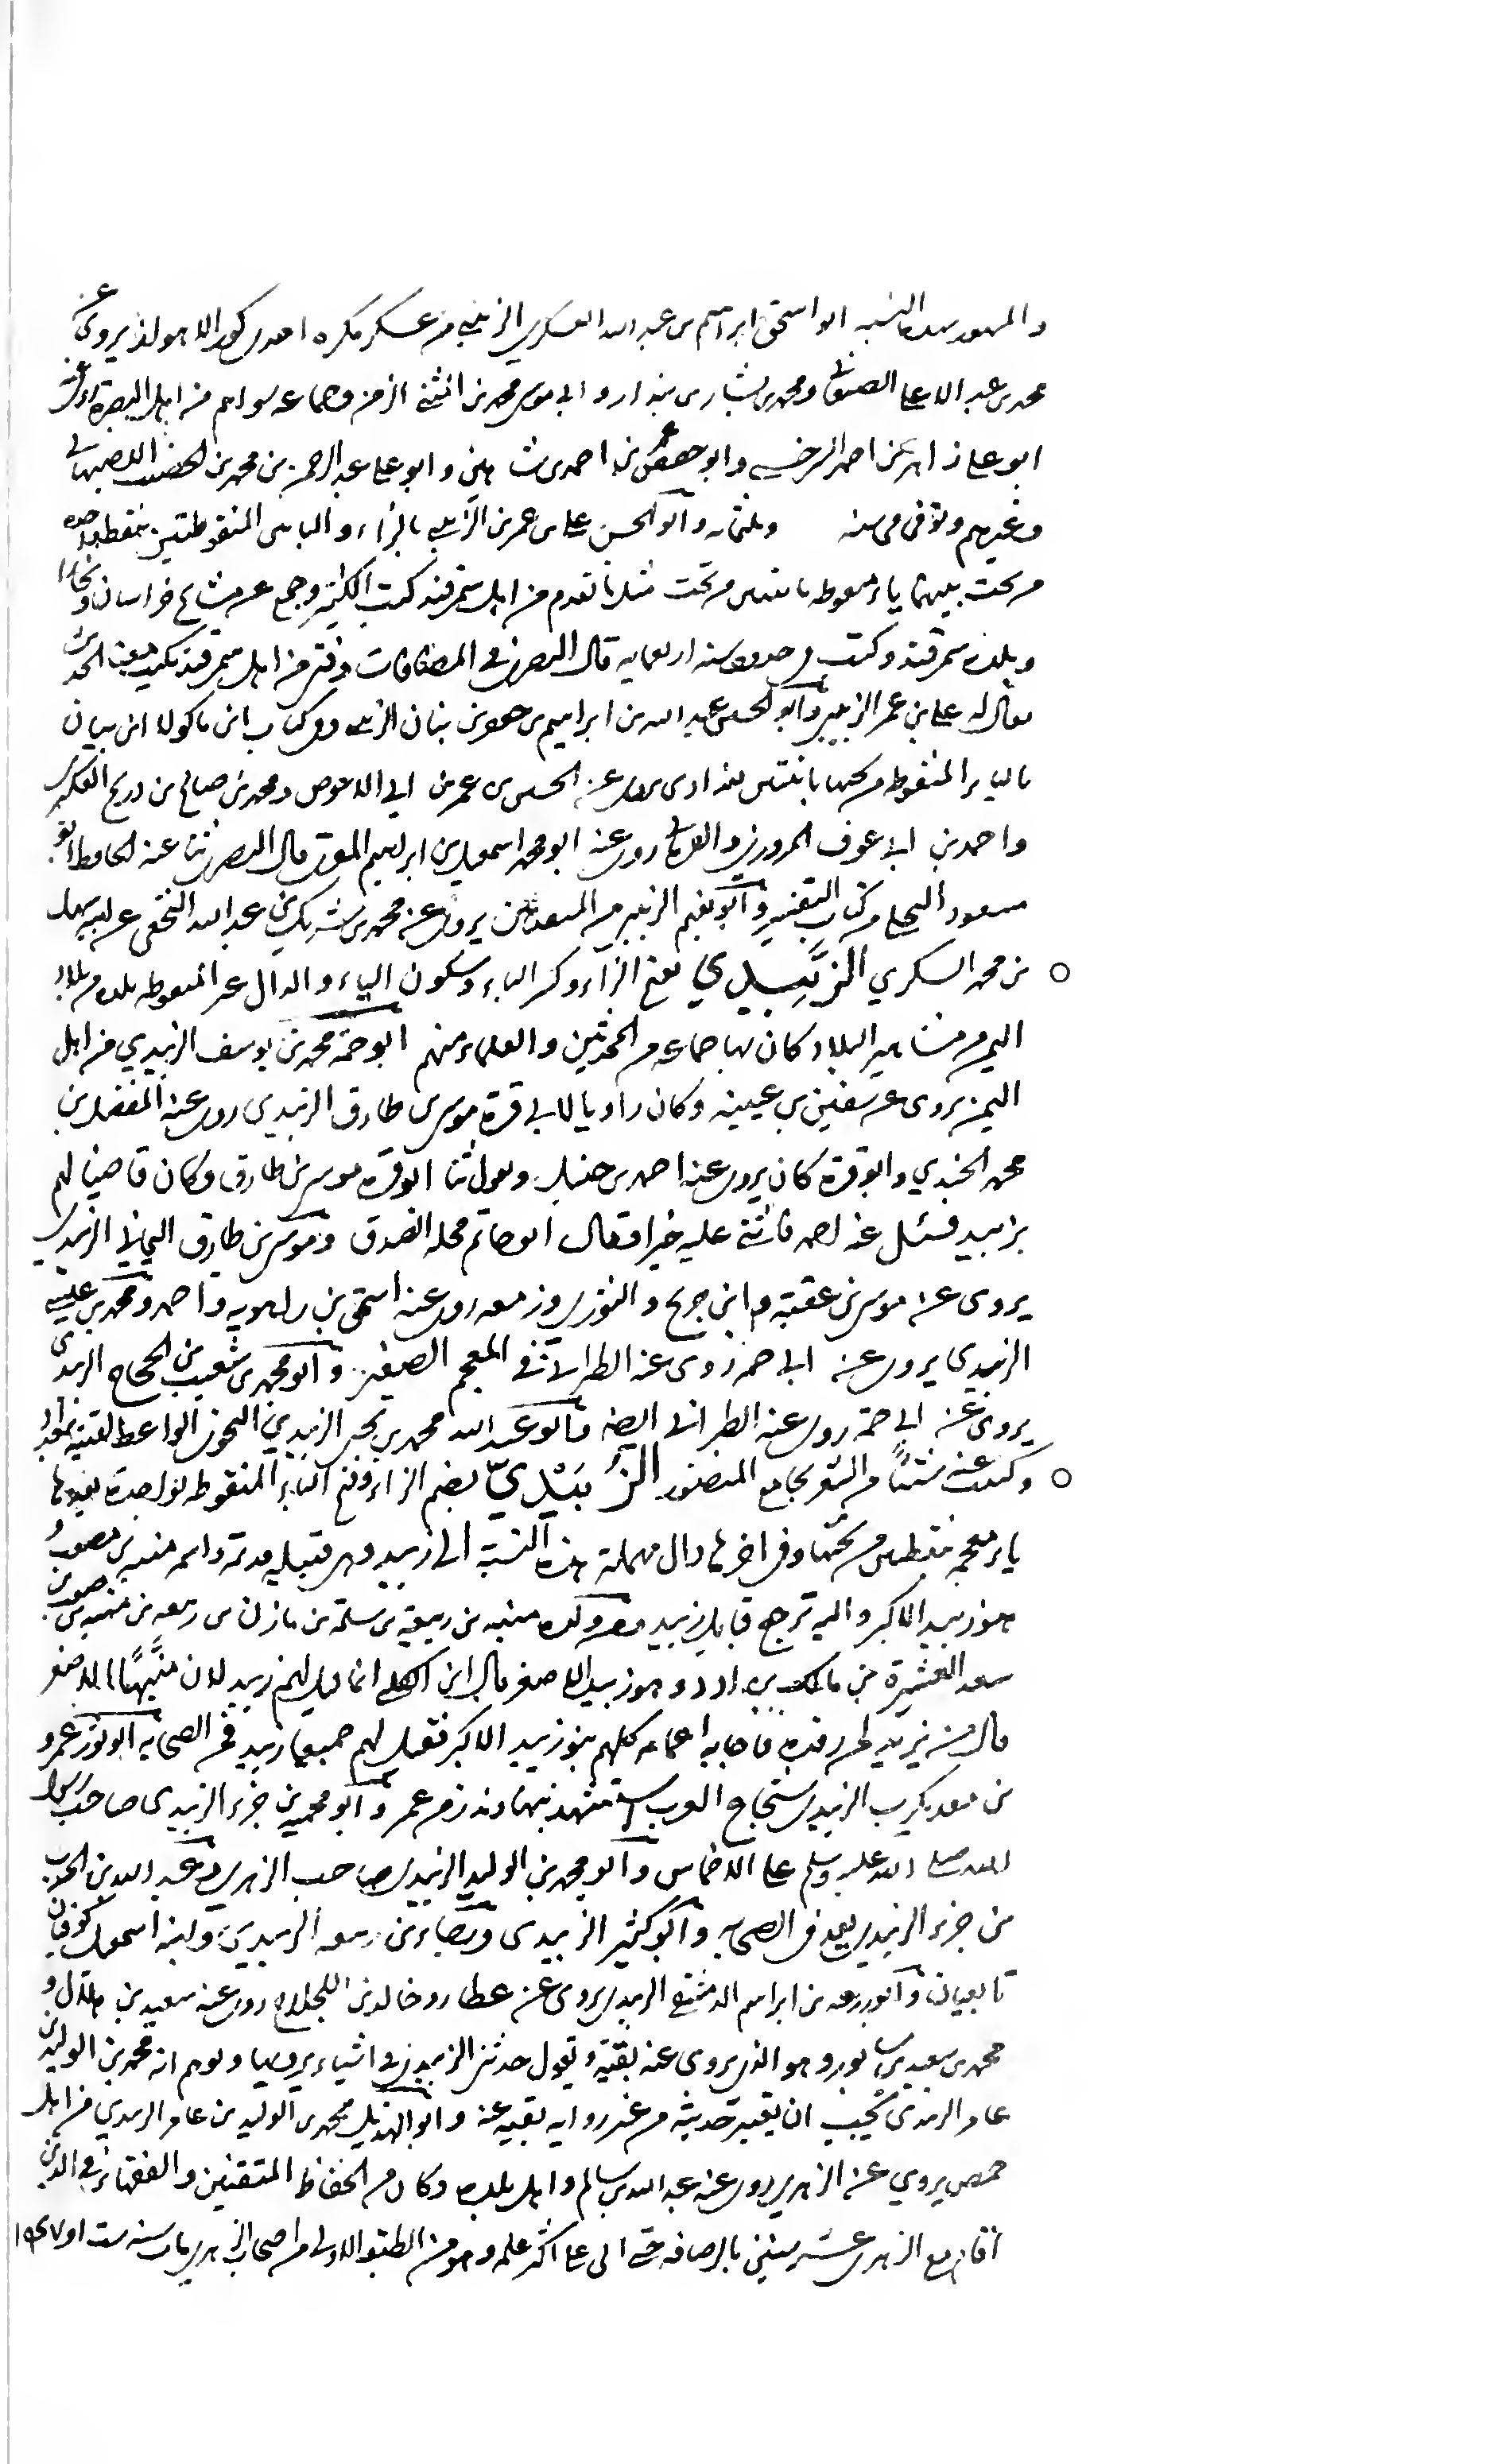 والمشهور بهذه النسبة ابو اسحق ابراهيم بن عبد الله العسكري الزبيبي من عسكر مكرم احدى كور الاهواز يروي عن
محمد بن عبد الاعلى الصنعاني ومحمد بن بشار بن بندار و ابي موسى محمد بن المثنى الزمن وجماعة سواهم من اهل البصرة روى عنه
ابو علي زاهر بن احمد السرخسي وابو حفص بن احمد بن شاهين و ابو علي عبد الرحمن بن محمد بن الاصبهاني
وغيرهم وتوفي في سنة وثلثمائة وابو الحسن علي بن عمر بن الزبيبي بالزاء و الباءين المنقوطتين بنقطة واحدة
من تحت بينهما ياء منقوطة باثنتين من تحت مثل ما تقدم من اهل سمرقند كتب الكثير وجمع عن مشايخ خراسان وبخارا
وبلده سمرقند وكتب في حدود سنة اربعمائة قال البصري في المضافات وفتى من اهل سمرقند يكتب معنا الحديث
يقال له علي بن عمر الزبيبي وابو الحسن عبيد الله بن ابراهيم بن جعفر بن بنان الزبيبي وفي كتاب ابن ماكولا ابن بيان
بالياء المنقوطة من تحتها باثنتين بغدادي يروي عن الحسن بن عمر بن ابي الاحوص ومحمد بن صالح بن ذريح العكبري
واحمد بن ابي عوف المروزي والفريابي روى عنه ابو محمد اسمعيل بن ابرهيم المقرئ قال البصري ثنا عنه الحافظ ابو
مسعود البجلي في كتاب التفسير وابو نعيم الزبيبي من المتعبدين يروي عن محمد بن شريك بن عبد الله النخعي عن ابيه سهل
بن محمد السكري الزَّبِيدي بفتح الزاء وكسر الباء وسكون الياء و الدال غير المنقوطة بلدة من بلاد
اليمن من مشاهير البلاد كان بها جماعة من المحدثين والعلماء منهم ابو حمة محمد بن يوسف الزبيدي من اهل
اليمن يروي عن سفين بن عيينه وكان راويا لابي قرة موسى بن طارق الزبيدي روى عنه المفضل بن
محمد الجندي وابو قرة كان يروي عنه احمد بن حنبل ويقول ثنا ابو قره موسى بن طارق وكان قاضيا لهم
بزبيد فسئل عنه احمد فاثنى عليه خيرا وقال ابو حاتم محله الصدق وموسى بن طارق اليماني الزبيدي
يروي عن موسى بن عقبة و ابن جريج و الثوري وزمعه روى عنه اسحق بن راهويه و احمد ومحمد بن عيسى
الزبيدي يروي عن ابي حمه روى عنه الطبراني في المعجم الصغير و ابو محمد بن شعيب بن الحجاج الزبيدي
يروي عن ابي حمة روى عنه الطبراني ايضا وابو عبد الله محمد بن يحيى الزبيدي النحوي الواعظ لقيته ببغداد
وكتبت عنه شيئا من الشعر بجامع المنصور الزُّبَيْديّ بضم الزاء وفتح الباء المنقوطة بواحدة بعدها
ياء معجمة بنقطتين من تحتها وفي اخرها دال مهملة هذه النسبة الى زبيد وهي قبيلة قديمة واسمه منبه بن صعب و
هو زبيد الاكبر واليه ترجع قبايل زبيد ومن ولده منبه بن ربيعة بن سلمة بن مازن بن ربيعه بن منبه بن صعب بن
سعد العشيرة بن مالك بن ادد وهو زبيد الاصغر قال ابن الكلبي انما قيل لهم زبيد لان منبّهًا الاصغر
قال من يزيدني رفده فاجابه اعمامه كلهم بنو زبيد الاكبر فقيل لهم جميعا زبيد فمن الصحابه ابو ثور عمرو
بن معديكرب الزبيدي شجاع العرب استشهد بنهاوند زمن عمر و ابو محمية بن جزء الزبيدي صاحب رسول
الله صلى الله عليه وسلم على الاخماس وابو محمد بن الوليد الزبيدي صاحب الزهري وعبد الله بن الحرث
بن جزء الزبيدي يعد في الصحابه وابو كثير الزبيدي ورجاء بن ربيعه الزبيدي وابنه اسمعيل كوفيان
تابعيان وابو زرعه بن ابراهيم الدمشقي الزبيدي يروي عن عطا وخالد بن اللجلاج روى عنه سعيد بن هلال و
محمد بن سعيد بن سابور وهو الذي يروي عنه بقية ويقول حدثني الزبيدي في اشياء يرويها ويوهم انه محمد بن الوليد بن
عامر الزبيدي يجب ان يعتبر حديثه من غير رواية بقيه عنه وابو الهذيل محمد بن الوليد بن عامر الزبيدي من اهل
حمص يروي عن الزهري روى عنه عبد الله بن سالم واهل بلده وكان من الحفاظ المتقنين والفقهاء في الدين
اقام مع الزهري عشر سنين بالرصافه حتى اتى على اكثر علمه وهو من الطبقة الاولى من اصحاب الزهري مات سنة ست او ١٤٧